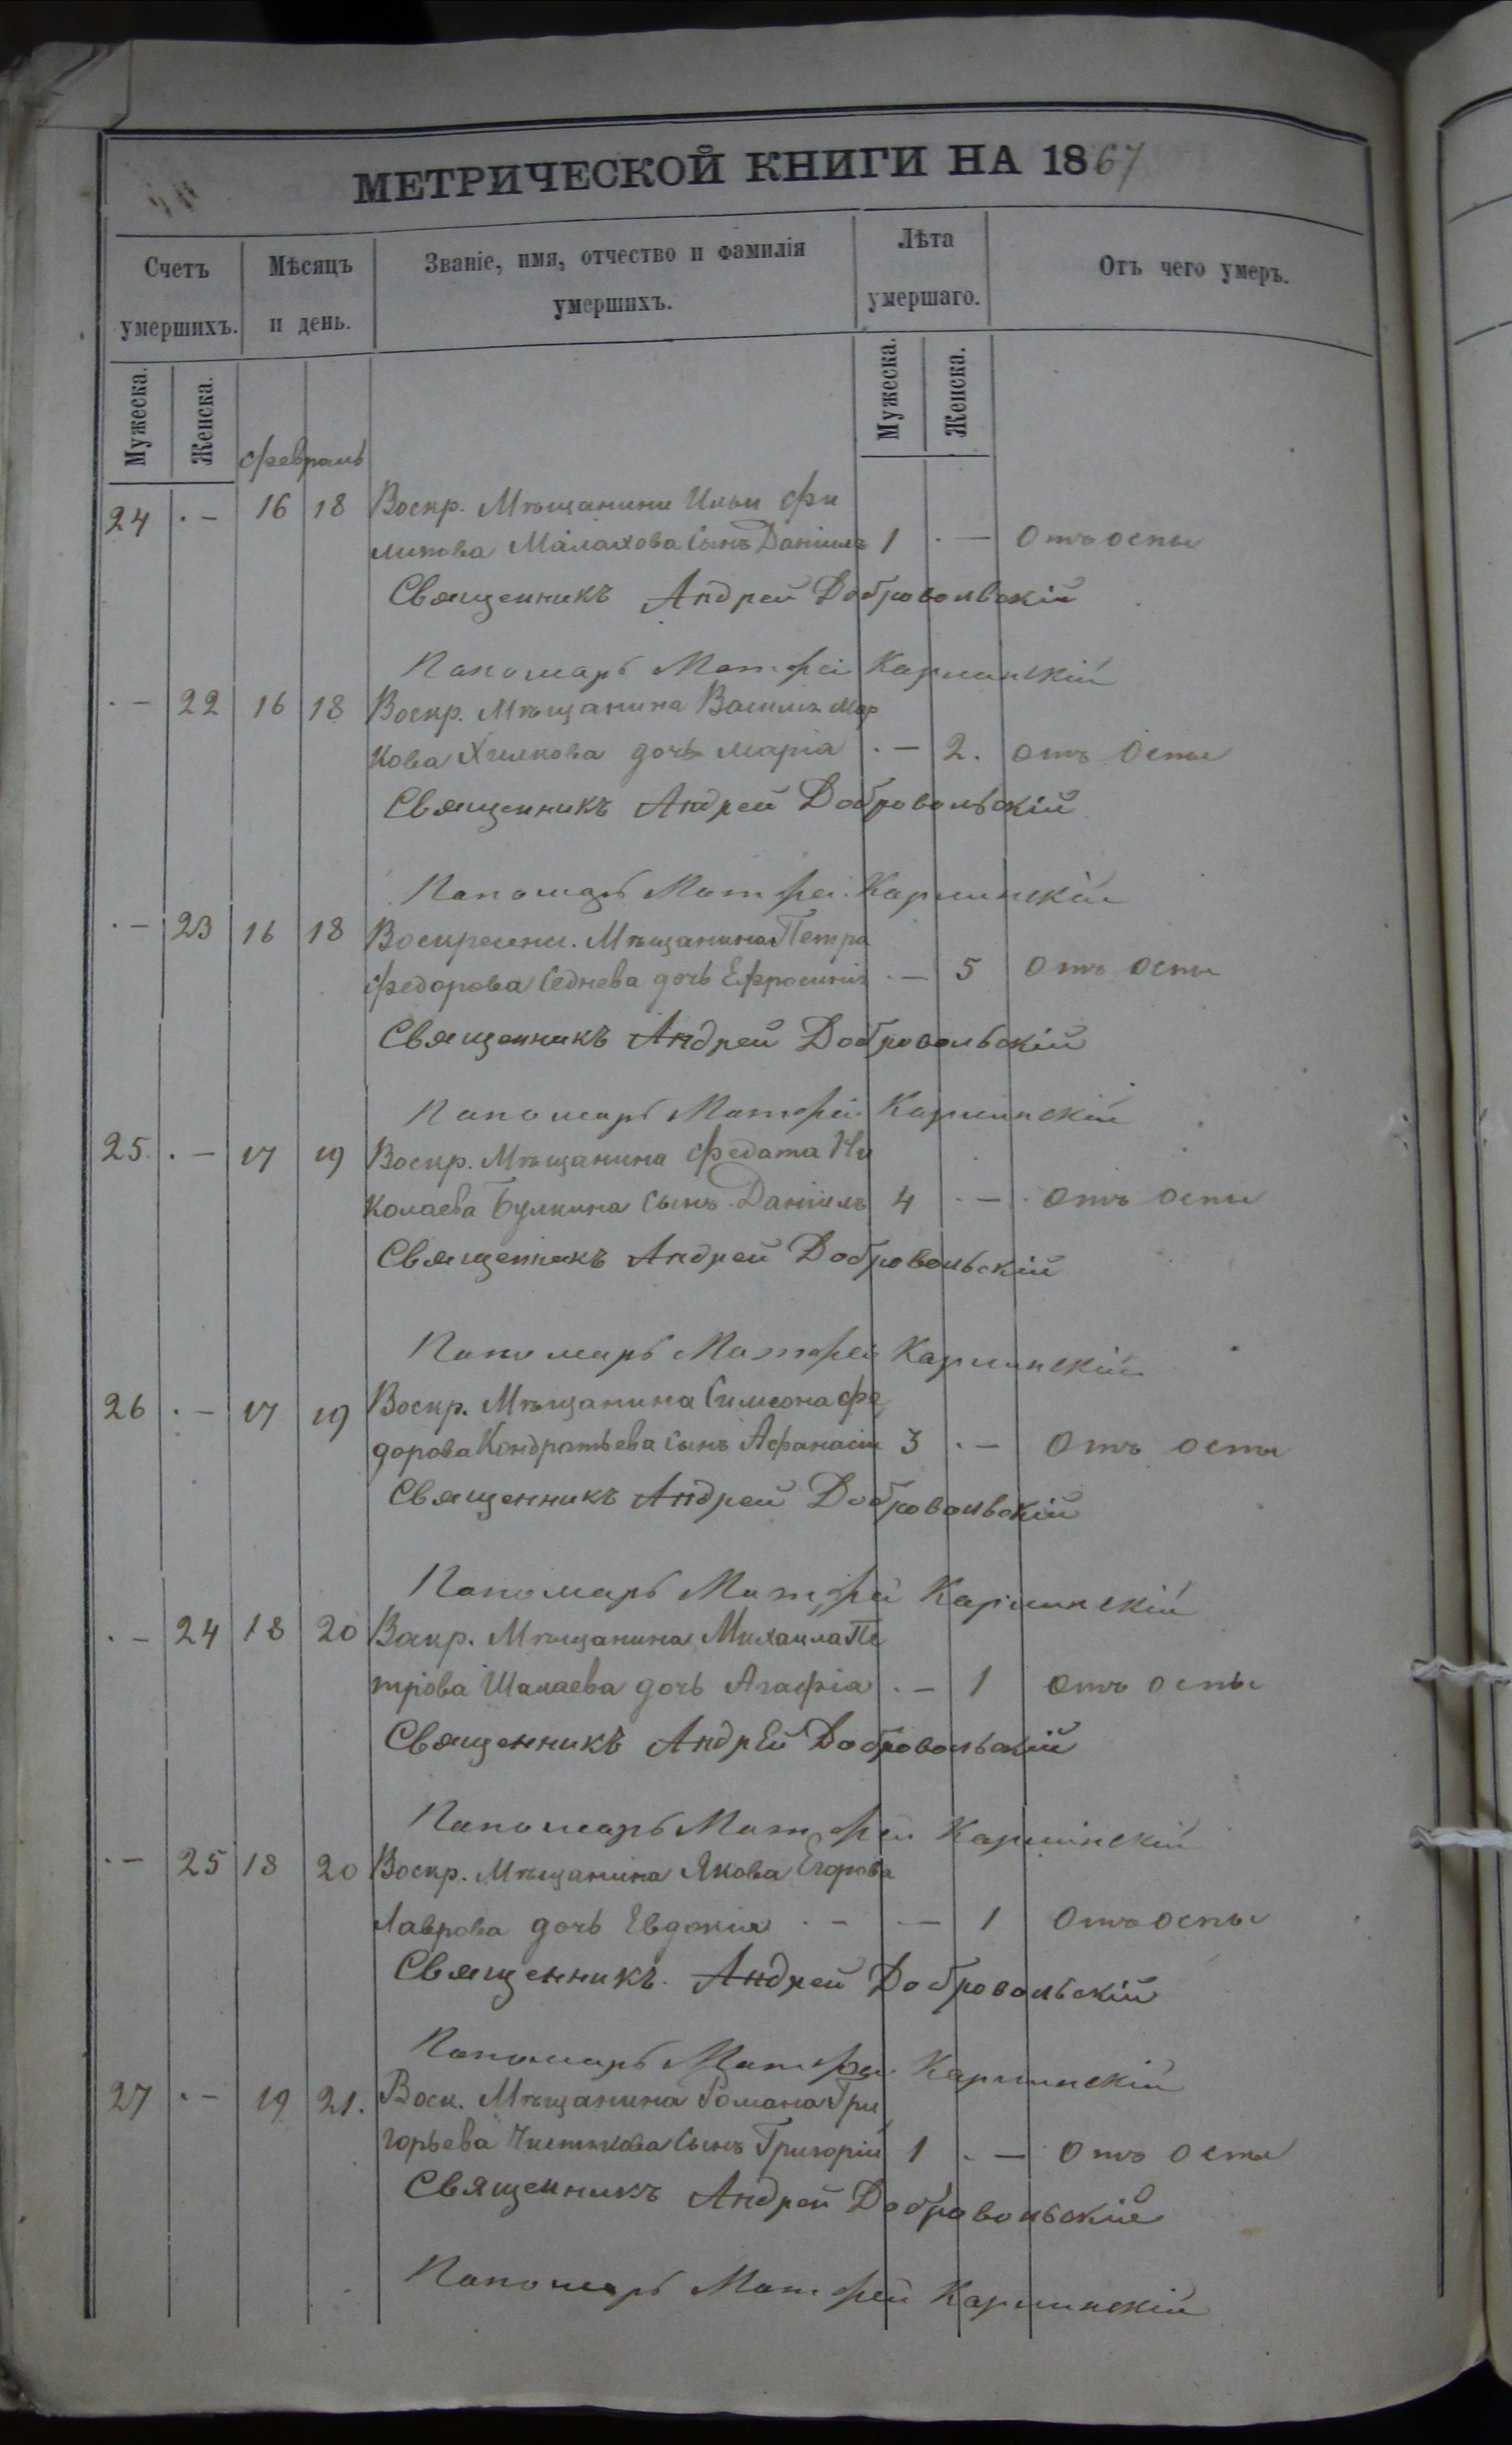 МЕТРИЧЕСКОЙ КНИГИ НА 1867
Счетъ умершихъ. Мѣсяцъ и день. Званіе, имя, отчество и фамилія умершихъ. Лѣта умершаго. Отъ чего умеръ.
Мужеска. Женска. Мужеска. Женска.
Февраль
24 · — 16 18 Воскр. Мѣщанина Ильи Фи
липова Малахова сынъ Даніилъ 1 · — Отъ оспы
Священникъ Андрей Добровольскій
Пономарь Матфей Карминскій
· — 22 16 18 Воскр. Мѣщанина Василія Мар
кова Хилкова дочь Марія · — 2. отъ Оспы
Священникъ Андрей Добровольскій
Пономарь Матфей Карминскій
· — 23 16 18 Воскресенс. Мѣщанина Петра
Федорова Седнева дочь Ефросинія · — 5 Отъ Оспы
Священникъ Андрей Добровольскій
Пономарь Матфей Карминскій
25. · — 17 19 Воскр. Мѣщанина Федота Ни
колаева Булкина сынъ Даніилъ 4 · — отъ оспы
Священникъ Андрей Добровольскій
Пономарь Матфей Карминскій
26 · — 17 19 Воскр. Мѣщанина Симеона Фе
дорова Кондратьева сынъ Афанасій 3 · — Отъ оспы
Священникъ Андрей Добровольскій
Пономарь Матфей Карминскій
· — 24 18 20 Воскр. Мѣщанина Михаила Пе
трова Шалаева дочь Агафія · — 1 отъ оспы
Священникъ Андрей Добровольскій
Пономарь Матфей Карминскій
· — 25 18 20 Воскр. Мѣщанина Якова Егорова
Лаврова дочь Евдокія · — · — 1 Отъ оспы
Священникъ. Андрей Добровольскій
Пономарь Матфей Карминскій
27 · — 19 21. Воск. Мѣщанина Романа Гри
горьева сынъ Григорій 1 · — Отъ Оспы
Священникъ Андрей Добровольскій
Пономарь Матфей Карминскій